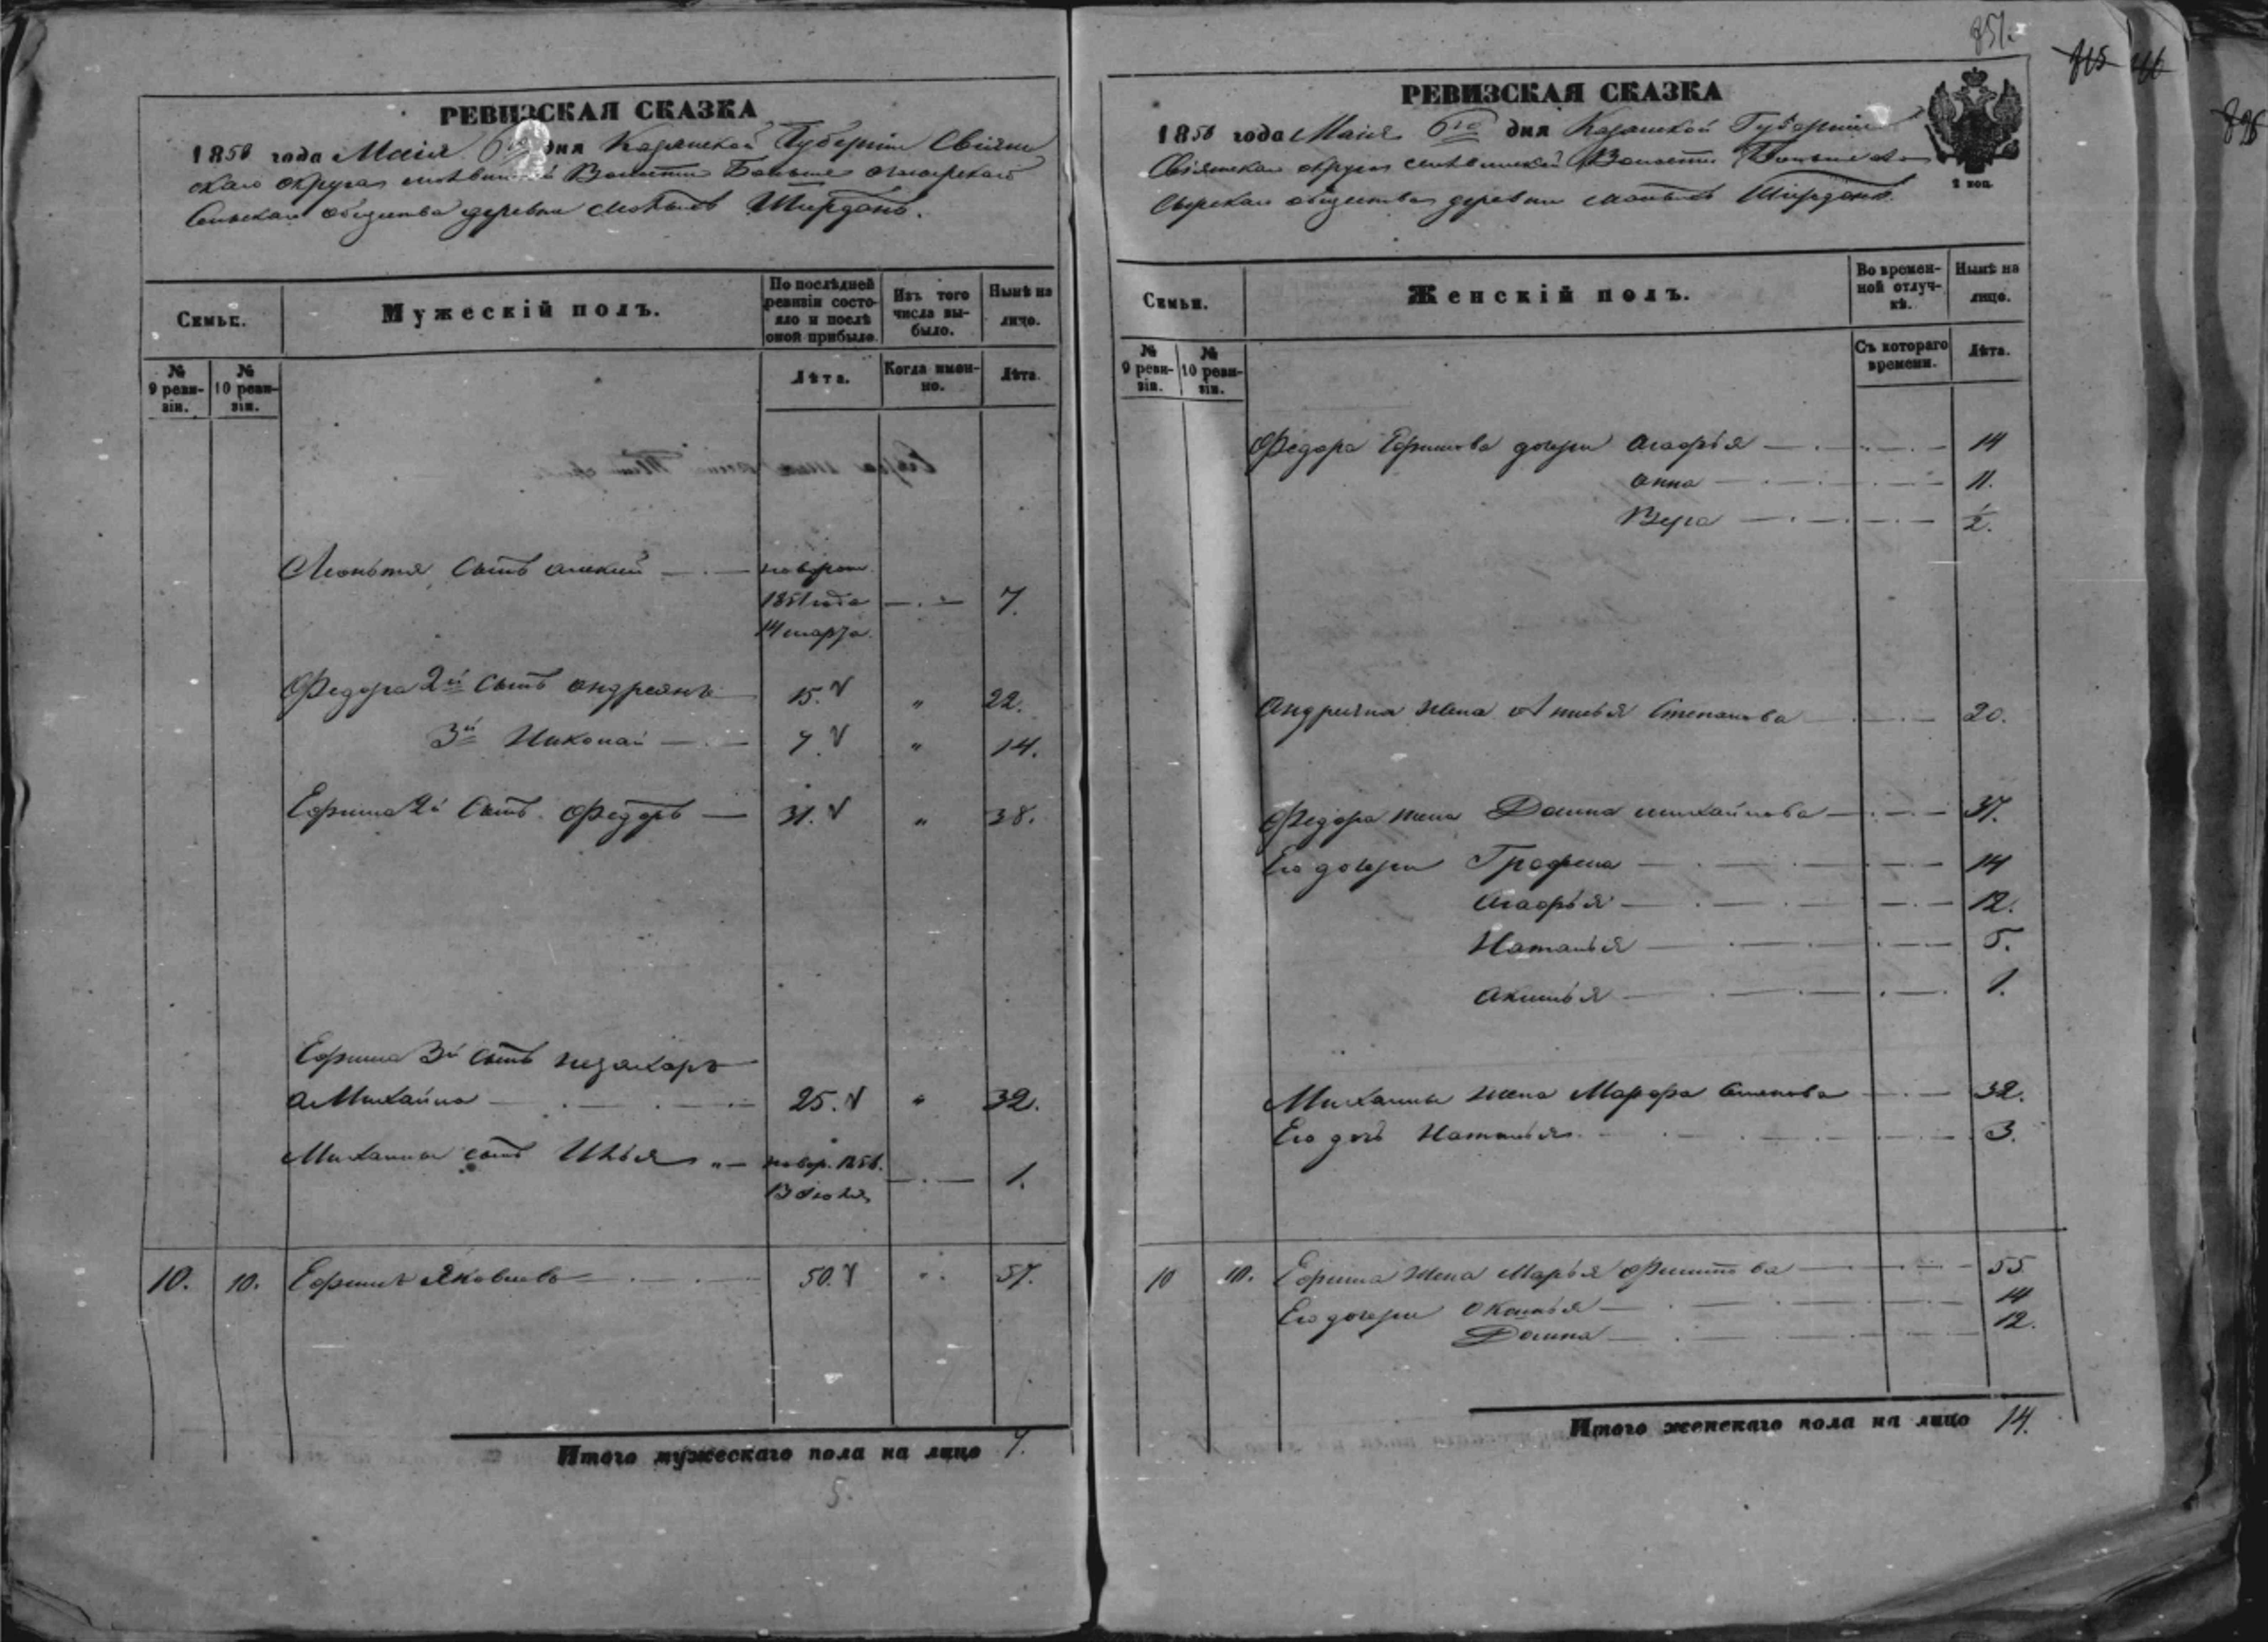 РЕВИЗСКАЯ СКАЗКА
1858 года Маія 6го дня Казанской Губерніи Свіяж
скаго округа Волости Больше
Сельскаго общества деревни Малыхъ Ширданъ.
Семьи.
Мужескій полъ.
По послѣдней
ревизіи состо-
яло и послѣ
оной прибыло.
Изъ того
числа вы-
было.
Нынѣ на
лицо.
№
9 реви-
зіи.
№
10 реви-
зіи.
Лѣта.
Когда имен-
но.
Лѣта.
Леонтья сынъ Алексѣй новорож.
1851 года 7.
14 марта.
Федора 2й сынъ Андреянъ 15. " 22.
3й Николай 7. " 14.
Ефима 2й сынъ Федоръ 31. " 38.
Ефима 3й сынъ
а Михайла 25. " 32.
Михайлы сынъ Илья новор. 1.
10. 10. Ефимъ Яковлевъ 50. " 57.
Итого мужескаго пола на лицо 7.
5.
851.
РЕВИЗСКАЯ СКАЗКА
1858 года Маія 6го дня Казанской Губерніи
Свіяжскаго округа Волости Больше
общества деревни Малыхъ Ширданъ
2 коп.
Семьи.
Женскій полъ.
Во времен-
ной отлуч-
кѣ.
Нынѣ на
лицо.
№
9 реви-
зіи.
№
10 реви-
зіи.
Съ котораго
времени.
Лѣта.
Федора Ефимова дочери Агафья 14
Анна 11.
Вера ½.
Андреяна жена Степанова 20.
Федора жена Домна Михайлова 37.
Его дочери Графена 14
Агафья 12.
Наталья 5.
1.
Михайлы жена Марфа 32.
Его дочь Наталья 3.
10 10. Ефима жена Марья 55
Его дочери 14
Домна 12.
Итого женскаго пола на лицо 14.